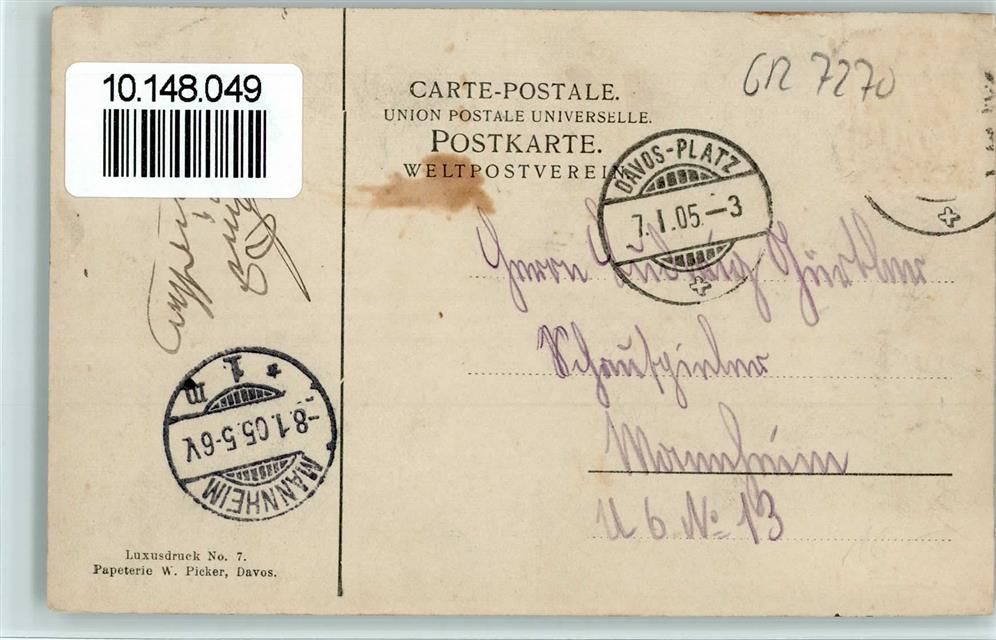 10.148.049
CARTE-POSTALE.
UNION POSTALE UNIVERSELLE.
POSTKARTE.
WELTPOSTVEREIN
GR 7270
DAVOS-PLATZ
7.I.05.-3
Herrn Ludwig
Schauspieler
Mannheim
U 6 No 13
MANNHEIM
-8.1.05.5-6V.
* 1. m
Luxusdruck No. 7.
Papeterie W. Picker, Davos.